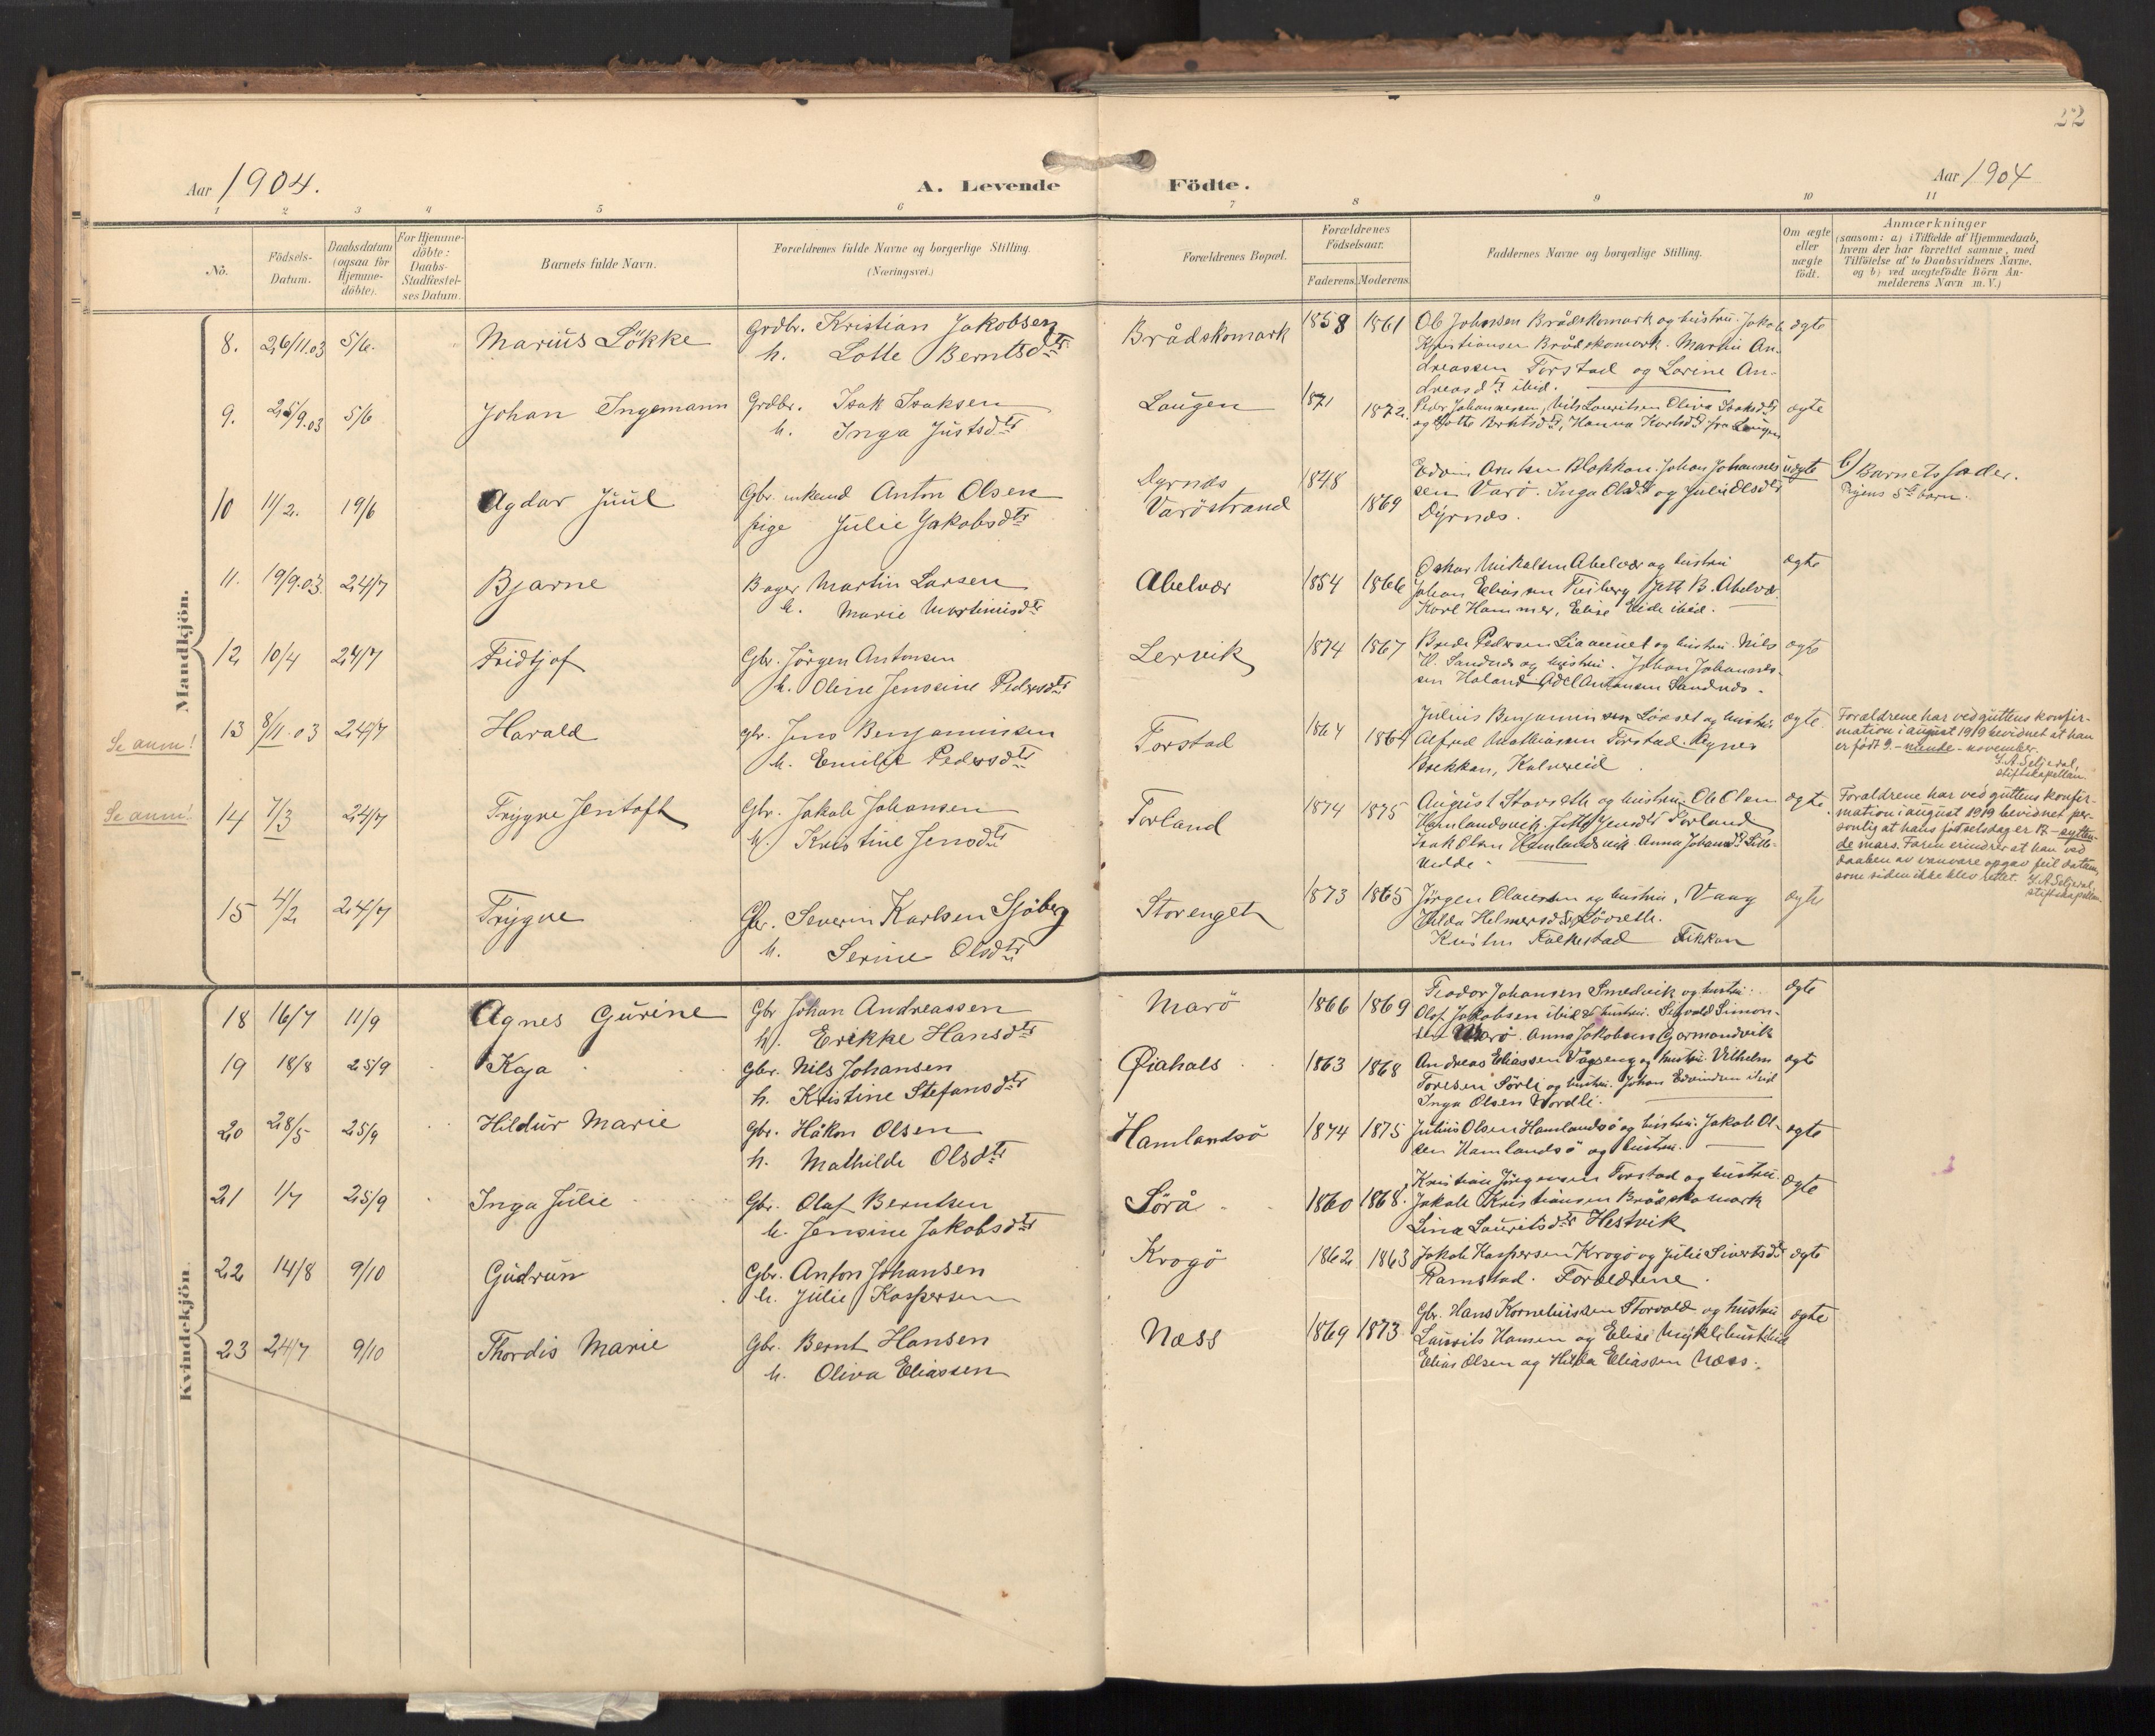 22
Aar 1904.
A. Levende Födte.
Aar 1904
1 2 3 4 5 6 7 8 9 10 11
No.
Födsels-
Datum.
Daabsdatum
(ogsaa for
Hjemme-
döbte).
For Hjemme-
döbte:
Daabs-
Stadfæstel-
ses Datum.
Barnets fulde Navn.
Forældrenes fulde Navne og borgerlige Stilling.
(Næringsvei.)
Forældrenes Bopæl.
Forældrenes
Födselsaar.
Faderens. Moderens.
Faddernes Navne og borgerlige Stilling.
Om ægte
eller
uægte
födt.
Anmærkninger
(saasom: a) i Tilfælde af Hjemmedaab,
hvem der har forrettet samme, med
Tilföielse af to Daabsvidners Navne,
og b) ved uægtefödte Börn An-
melderens Navn m. V.)
Mandkjön.
8. 26/11.03 5/6. Marius Lökke
Grdbr. Kristian Jakobsen
h. Lotte Berntsdtr
Brådskomark 1858 1861
Ole Johnsen Brådskomark og hustru. Jakob
Kristiansen Brådskomark. Martin An-
dreassen Torstad og Lorine An-
dreasdtr ibid.
ægte
9. 25/9.03 5/6 Johan Ingemann
Grdbr. Isak Isaksen
h. Inga Justsdtr
Laugen 1871 1872.
Peder Johannessen, Nils Lauritsen Oliva Isaksdtr
og Lotte Berntsdtr, Hanna fra Laugen
ægte
10 11/2. 19/6 Agdar Juul
Gbr. enkemd Anton Olsen
pige Julie Jakobsdtr
Dyrnæs
Varöstrand
1848
1869
Edvin Arntsen Blakkan. Johan Johannes-
sen Varö. Inga Olsdtr og Julie Olsdtr
Dyrnæs.
uægte
b) Barnets fader.
Pigens 5te barn.
11. 19/9.03. 24/7 Bjarne
Bager Martin Larsen
h. Marie Martinusdtr
Abelvær 1854 1866
Oskar Mikalsen Abelvær og hustru
Johan Eliassen Jette B. Abelvær.
Karl Hammer, Elise Eide ibid.
ægte
12 10/4 24/7 Fridtjof
Gbr. Jörgen Antonsen
h. Oline Jensine Pedersdtr
Lervik 1874 1867
Brede Pedersen og hustru. Nils
Sandnæs og hustru. Johan Johannes-
sen Haland. Antonsen Sandnæs.
ægte
Se anm!
13 8/11.03 24/7 Harald
gbr. Jens Benjaminsen
h. Emilie Pedersdtr
Torstad 1864 1864
Julius Benjaminsen og hustru
Alfred Mathiassen Torstad. Agnes
Brekkan, Kalvereid
ægte.
Forældrene har ved guttens konfir-
mation i august 1919 bevidnet at han
er født 9. - niende - november.
S.A. Seljeval,
stiftskapellan
Se anm!
14 7/3 24/7 Trygve Jentoft
Gbr. Jakob Johansen
h. Kristine Jensdtr
Torland 1874 1875
August og hustru. Ole Olsen
Hamlandsvik. Jensdtr Torland
Isak Olsen Hamlandsvik. Anna Lille-
vedde.
ægte.
Forældrene har ved guttens konfir-
mation i august 1919 bevidnet per-
sonlig at hans fødselsdag er 17 - sytten-
de mars. Faren erindrer at han ved
daaben av vanvare opgav feil datum,
som siden ikke blev rettet. S.A. Seljeval,
stiftskapellan
15 4/2 24/7 Trygve
Gbr. Severin Karlsen Sjöberg
h. Serine Olsdtr
Storenget 1873 1865
Jörgen og hustru, Vaag
Hilda Helmersdtr
Falkestad Fikkan
ægte
Kvindekjön.
18 16/7 11/9 Agnes Gurine
Gbr Johan Andreassen
h. Erikke Hansdtr
Marö 1866 1869
Teodor Johansen Smedvik og hustru.
Olof Jakobsen ibid og hustru. Sigvald Simon-
sen Marö. Anna Jakobsen Garmandvik
ægte
19 18/8 25/9 Kaja
Gbr. Nils Johansen
h. Kristine Stefansdtr
Øiahals 1863 1868
Andreas Eliassen Vågseng og hustru. Vilhelm
Toresen Sörli og hustru. Johan Edvindsen ibid
Inga Olsen Nordli.
ægte
20 28/5 25/9 Hildur Marie
Gbr. Håkon Olsen
h. Mathilde Olsdtr
Hamlandsö 1874 1875
Julius Olsen Hamlandsö og hustru. Jakob Ol-
sen Hamlandsö og hustru.
ægte
21 1/7 25/9 Inga Julie
Gbr. Olaf Berntsen
h. Jensine Jakobsdtr
Sörå 1860 1868.
Kristian Jörgensen Torstad og hustru.
Jakob Kristiansen Brådskomark
Lina Lauritsdtr Hestvik
ægte
22 14/8 9/10 Gudrun
Gbr. Anton Johansen
h. Julie Kaspersen
Krogö 1862 1863
Jakob Kaspersen Krogö og Julie Sivertsdtr
Ramstad. Forældrene.
ægte
23 24/7 9/10 Thordis Marie
Gbr. Bernt Hansen
h. Oliva Eliassen
Næss 1869 1873
Gbr. Hans Korneliussen Storvold og hustru
Laurits Hansen og Elise Myklebust ibid
Elias Olsen og Hilda Eliassen Næss.
ægte